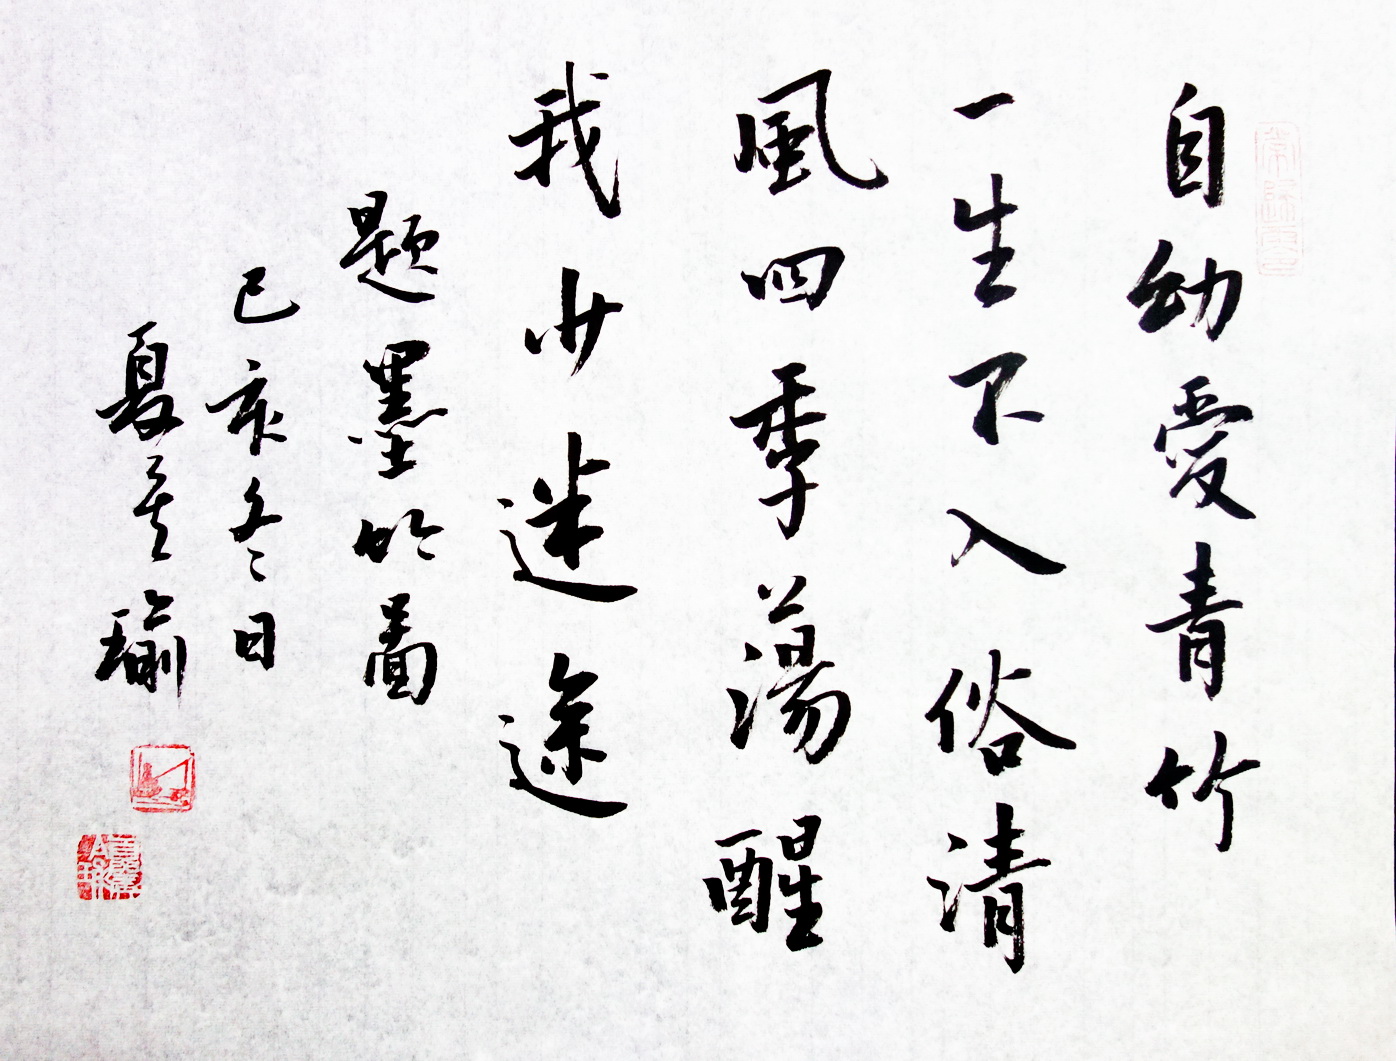 自幼愛青竹
一生不入俗清
風四季蕩醒
我少迷途
题墨竹圖
己亥冬日
夏瑜